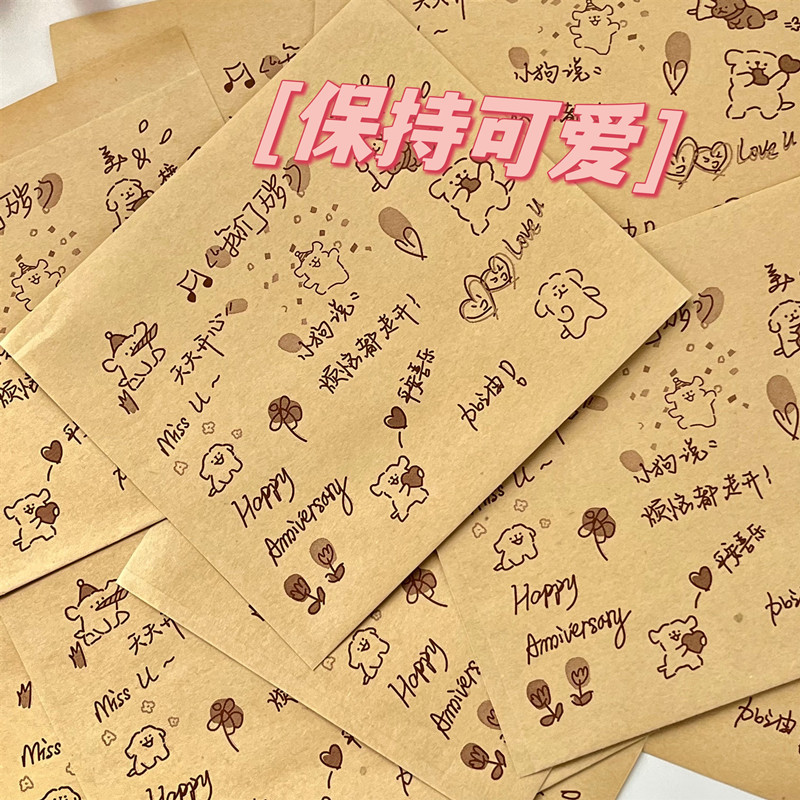 小狗说:
Love U
[保持可爱]
Love U
天天开心
小狗说:
烦恼都走开!
Miss U~
平安喜乐
加油!
Happy
Anniversary
小狗说:
烦恼都走开!
平安喜乐
Happy
Anniversary
加油
天天开
Miss U~
Happy
Anniversary
加油
Miss
Happy